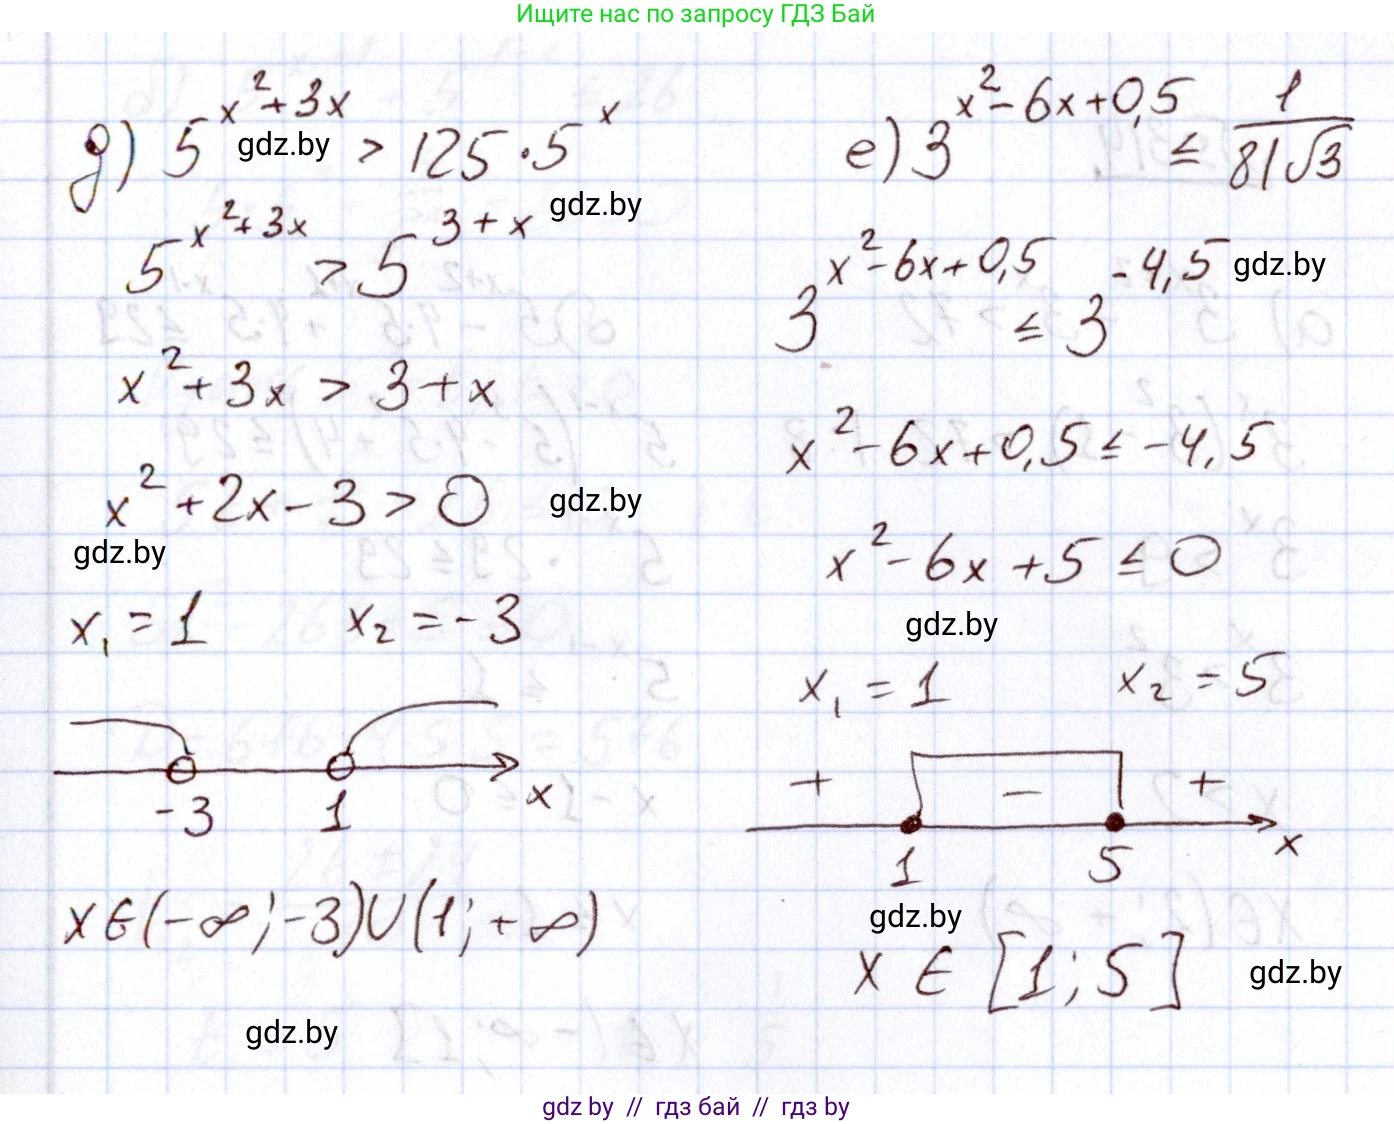 Ищите нас по запросу ГДЗ Бай
д) 5^(x²+3x) > 125·5^x
gdz.by
gdz.by
5^(x²+3x) > 5^(3+x)
x²+3x > 3+x
x²+2x-3 > 0
gdz.by
gdz.by
x₁ = 1 x₂ = -3
-3 1 x
x∈(-∞;-3)∪(1;+∞)
gdz.by
е) 3^(x²-6x+0,5) ≤ 1/(81√3)
3^(x²-6x+0,5) ≤ 3^(-4,5)
gdz.by
x²-6x+0,5 ≤ -4,5
x²-6x+5 ≤ 0
gdz.by
x₁ = 1 x₂ = 5
+ − +
1 5 x
gdz.by
x ∈ [1;5]
gdz.by
gdz by // гдз бай // гдз by